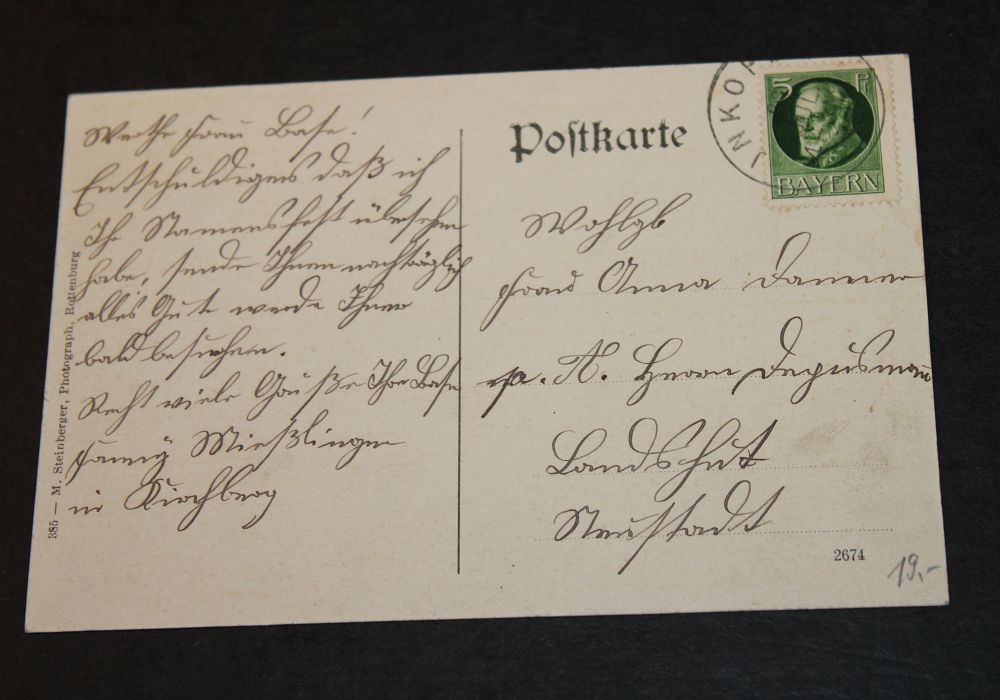 Werthe Frau Base!
Entschuldigens daß ich
Ihr Namensfest übersehen
habe, sende Ihnen nachträglich
alles Gute werde Ihnen
bald besuchen.
Recht viele Grüße Ihre Base
Fanny Mießlinger
in Kirchberg
385 — M. Steinberger, Photograph, Rottenburg
Postkarte
5 Pf
BAYERN
Wohlgb
Frau Anna Danner
p. A. Herrn
Landshut
Neustadt
2674
19,-